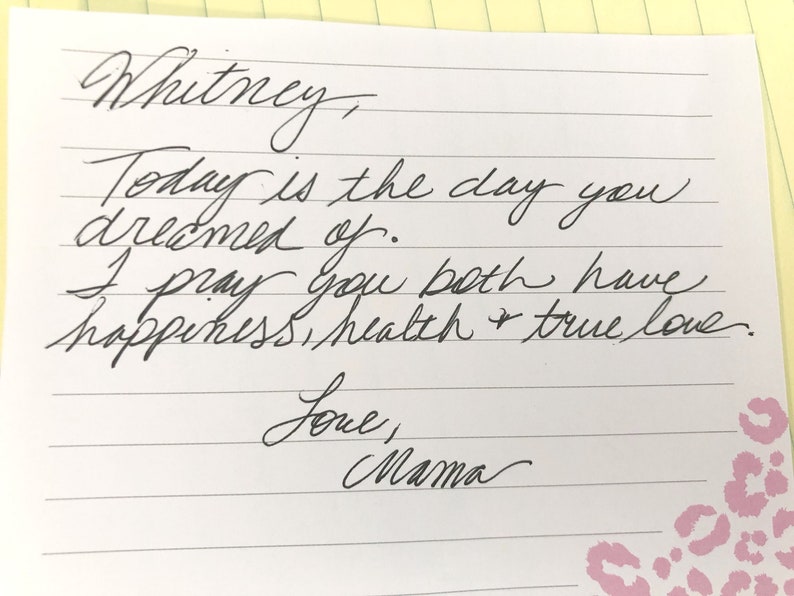 Whitney,
Today is the day you
dreamed of.
I pray you both have
happiness, health & true love.
Love,
Mama